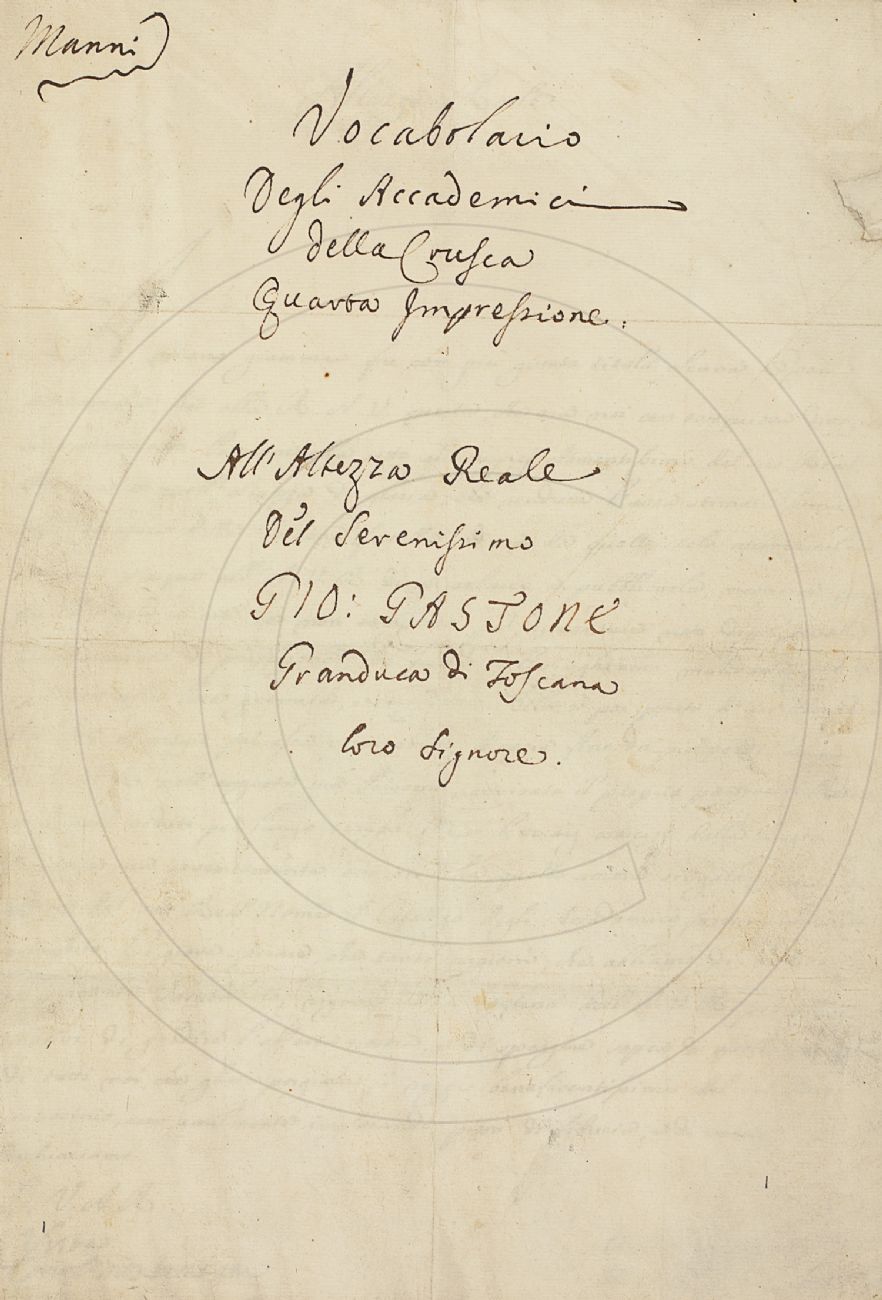 Manni
Vocabolario
Degli Accademici
della Crusca
Quarta Impressione.
All'Altezza Reale
Del Serenissimo
GIO: GASTONE
Granduca di Toscana
loro Signore.